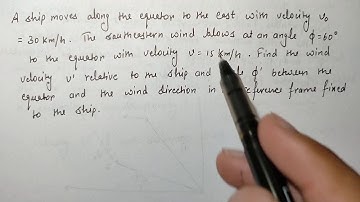 A ship moves along the equator to the east with velocity v₀
= 30 km/h. The southeastern wind blows at an angle φ=60°
to the equator with velocity v = 15 km/h. Find the wind
velocity v' relative to the ship and φ' between the
equator and the wind direction in reference frame fixed
to the ship.